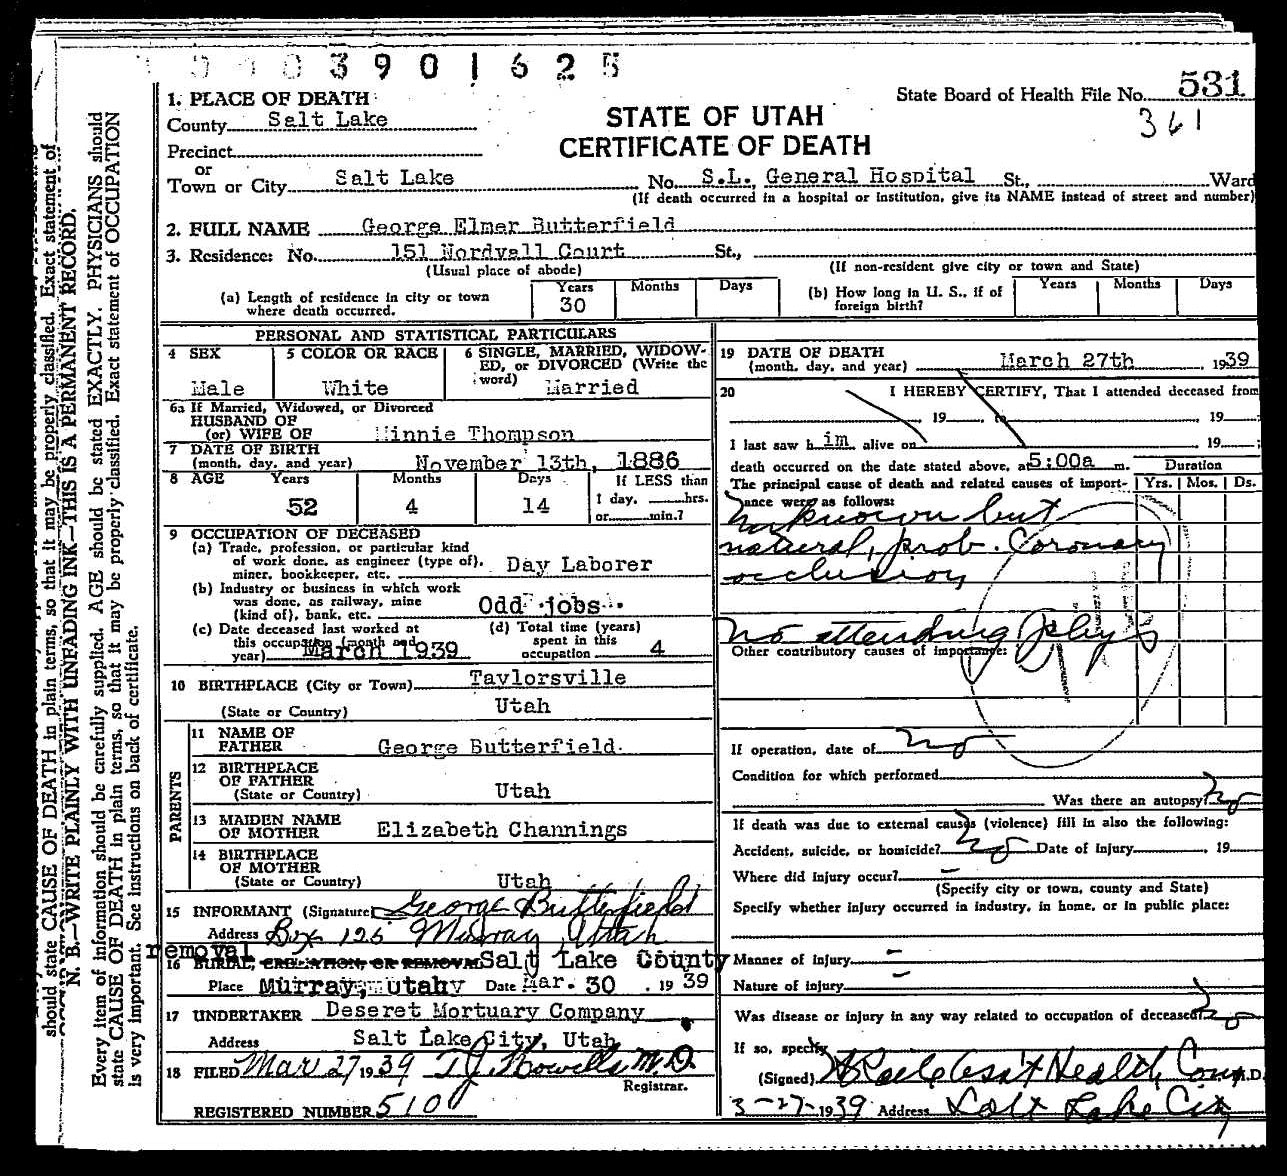 3901625
State Board of Health File No. 531
361
STATE OF UTAH
CERTIFICATE OF DEATH
1. PLACE OF DEATH
County Salt Lake
Precinct
or
Town or City Salt Lake No. S.L. General Hospital St., Ward
(If death occurred in a hospital or institution, give its NAME instead of street and number)
2. FULL NAME George Elmer Butterfield
3. Residence: No. 151 Nordvall Court St.,
(Usual place of abode) (If non-resident give city or town and State)
(a) Length of residence in city or town where death occurred. Years 30 Months Days
(b) How long in U. S., if of foreign birth? Years Months Days
PERSONAL AND STATISTICAL PARTICULARS
4 SEX Male
5 COLOR OR RACE White
6 SINGLE, MARRIED, WIDOW-
ED, or DIVORCED (Write the
word) Married
6a If Married, Widowed, or Divorced
HUSBAND OF
(or) WIFE OF Minnie Thompson
7 DATE OF BIRTH
(month, day, and year) November 13th, 1886
8 AGE Years 52 Months 4 Days 14 If LESS than
1 day, hrs.
or min.?
9 OCCUPATION OF DECEASED
(a) Trade, profession, or particular kind
of work done, as engineer (type of),
miner, bookkeeper, etc. Day Laborer
(b) Industry or business in which work
was done, as railway, mine
(kind of), bank, etc. Odd jobs
(c) Date deceased last worked at
this occupation (month and
year) March 1939
(d) Total time (years)
spent in this
occupation 4
10 BIRTHPLACE (City or Town) Taylorsville
(State or Country) Utah
PARENTS
11 NAME OF
FATHER George Butterfield
12 BIRTHPLACE
OF FATHER
(State or Country) Utah
13 MAIDEN NAME
OF MOTHER Elizabeth Channings
14 BIRTHPLACE
OF MOTHER
(State or Country) Utah
15 INFORMANT (Signature) George Butterfield
Address Box 125 Murray, Utah
removal
16 BURIAL, CREMATION, OR REMOVAL Salt Lake County
Place Murray, Utah Date Mar. 30, 1939
17 UNDERTAKER Deseret Mortuary Company
Address Salt Lake City, Utah
18 FILED Mar 27 1939 T.J. Howells M.D.
Registrar.
REGISTERED NUMBER 510
19 DATE OF DEATH
(month, day, and year) March 27th 1939
20 I HEREBY CERTIFY, That I attended deceased from
19 to 19
I last saw h im alive on 19
death occurred on the date stated above, at 5:00a m.
Duration
The principal cause of death and related causes of import-
ance were as follows: Yrs. Mos. Ds.
Unknown but
natural, prob. Coronary
occlusion
No attending Phys
Other contributory causes of importance:
If operation, date of no
Condition for which performed
Was there an autopsy? no
If death was due to external causes (violence) fill in also the following:
Accident, suicide, or homicide? no Date of injury , 19
Where did injury occur? –
(Specify city or town, county and State)
Specify whether injury occurred in industry, in home, or in public place:
Manner of injury –
Nature of injury –
Was disease or injury in any way related to occupation of deceased? no
If so, specify
(Signed) Ass't Health Com. M.D.
3-27-1939 Address Salt Lake City
N. B.—WRITE PLAINLY WITH UNFADING INK—THIS IS A PERMANENT RECORD.
Every item of information should be carefully supplied. AGE should be stated EXACTLY. PHYSICIANS should
state CAUSE OF DEATH in plain terms, so that it may be properly classified. Exact statement of OCCUPATION
is very important. See instructions on back of certificate.
should state CAUSE OF DEATH in plain terms, so that it may be properly classified. Exact statement of